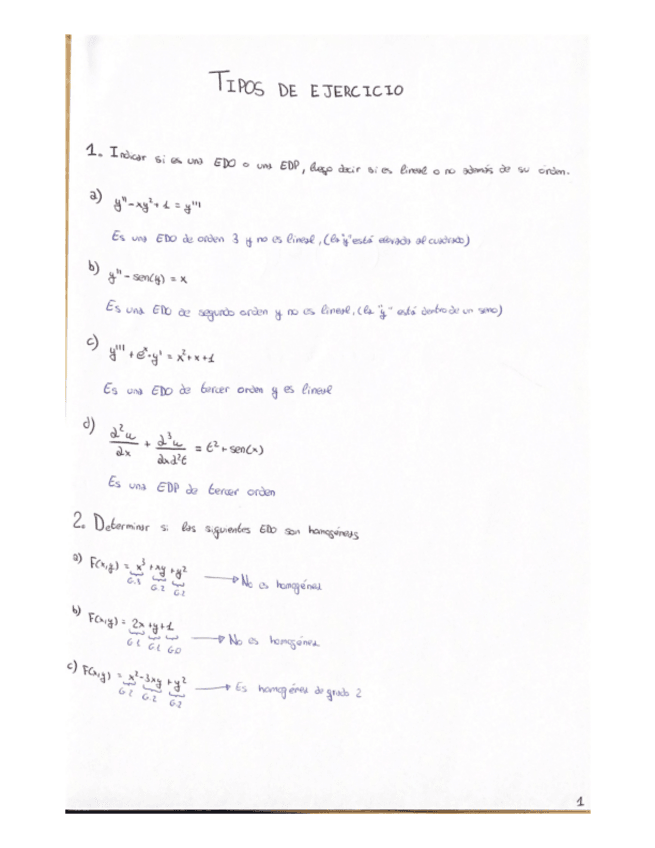 TIPOS DE EJERCICIO
1. Indicar si es una EDO o una EDP, luego decir si es lineal o no además de su orden.
a) y'' - xy² + 1 = y'''
Es una EDO de orden 3 y no es lineal, (la "y" está elevada al cuadrado)
b) y'' - sen(y) = x
Es una EDO de segundo orden y no es lineal, (la "y" está dentro de un seno)
c) y''' + eˣ·y' = x² + x + 1
Es una EDO de tercer orden y es lineal
d) ∂²u/∂x + ∂³u/∂x∂²t = t² + sen(x)
Es una EDP de tercer orden
2. Determinar si las siguientes EDO son homogéneas
a) F(x,y) = x³ + xy + y² → No es homogénea
G.3 G.2 G.2
b) F(x,y) = 2x + y + 1 → No es homogénea
G.1 G.1 G.0
c) F(x,y) = x² - 3xy + y² → Es homogénea de grado 2
G.2 G.2 G.2
1